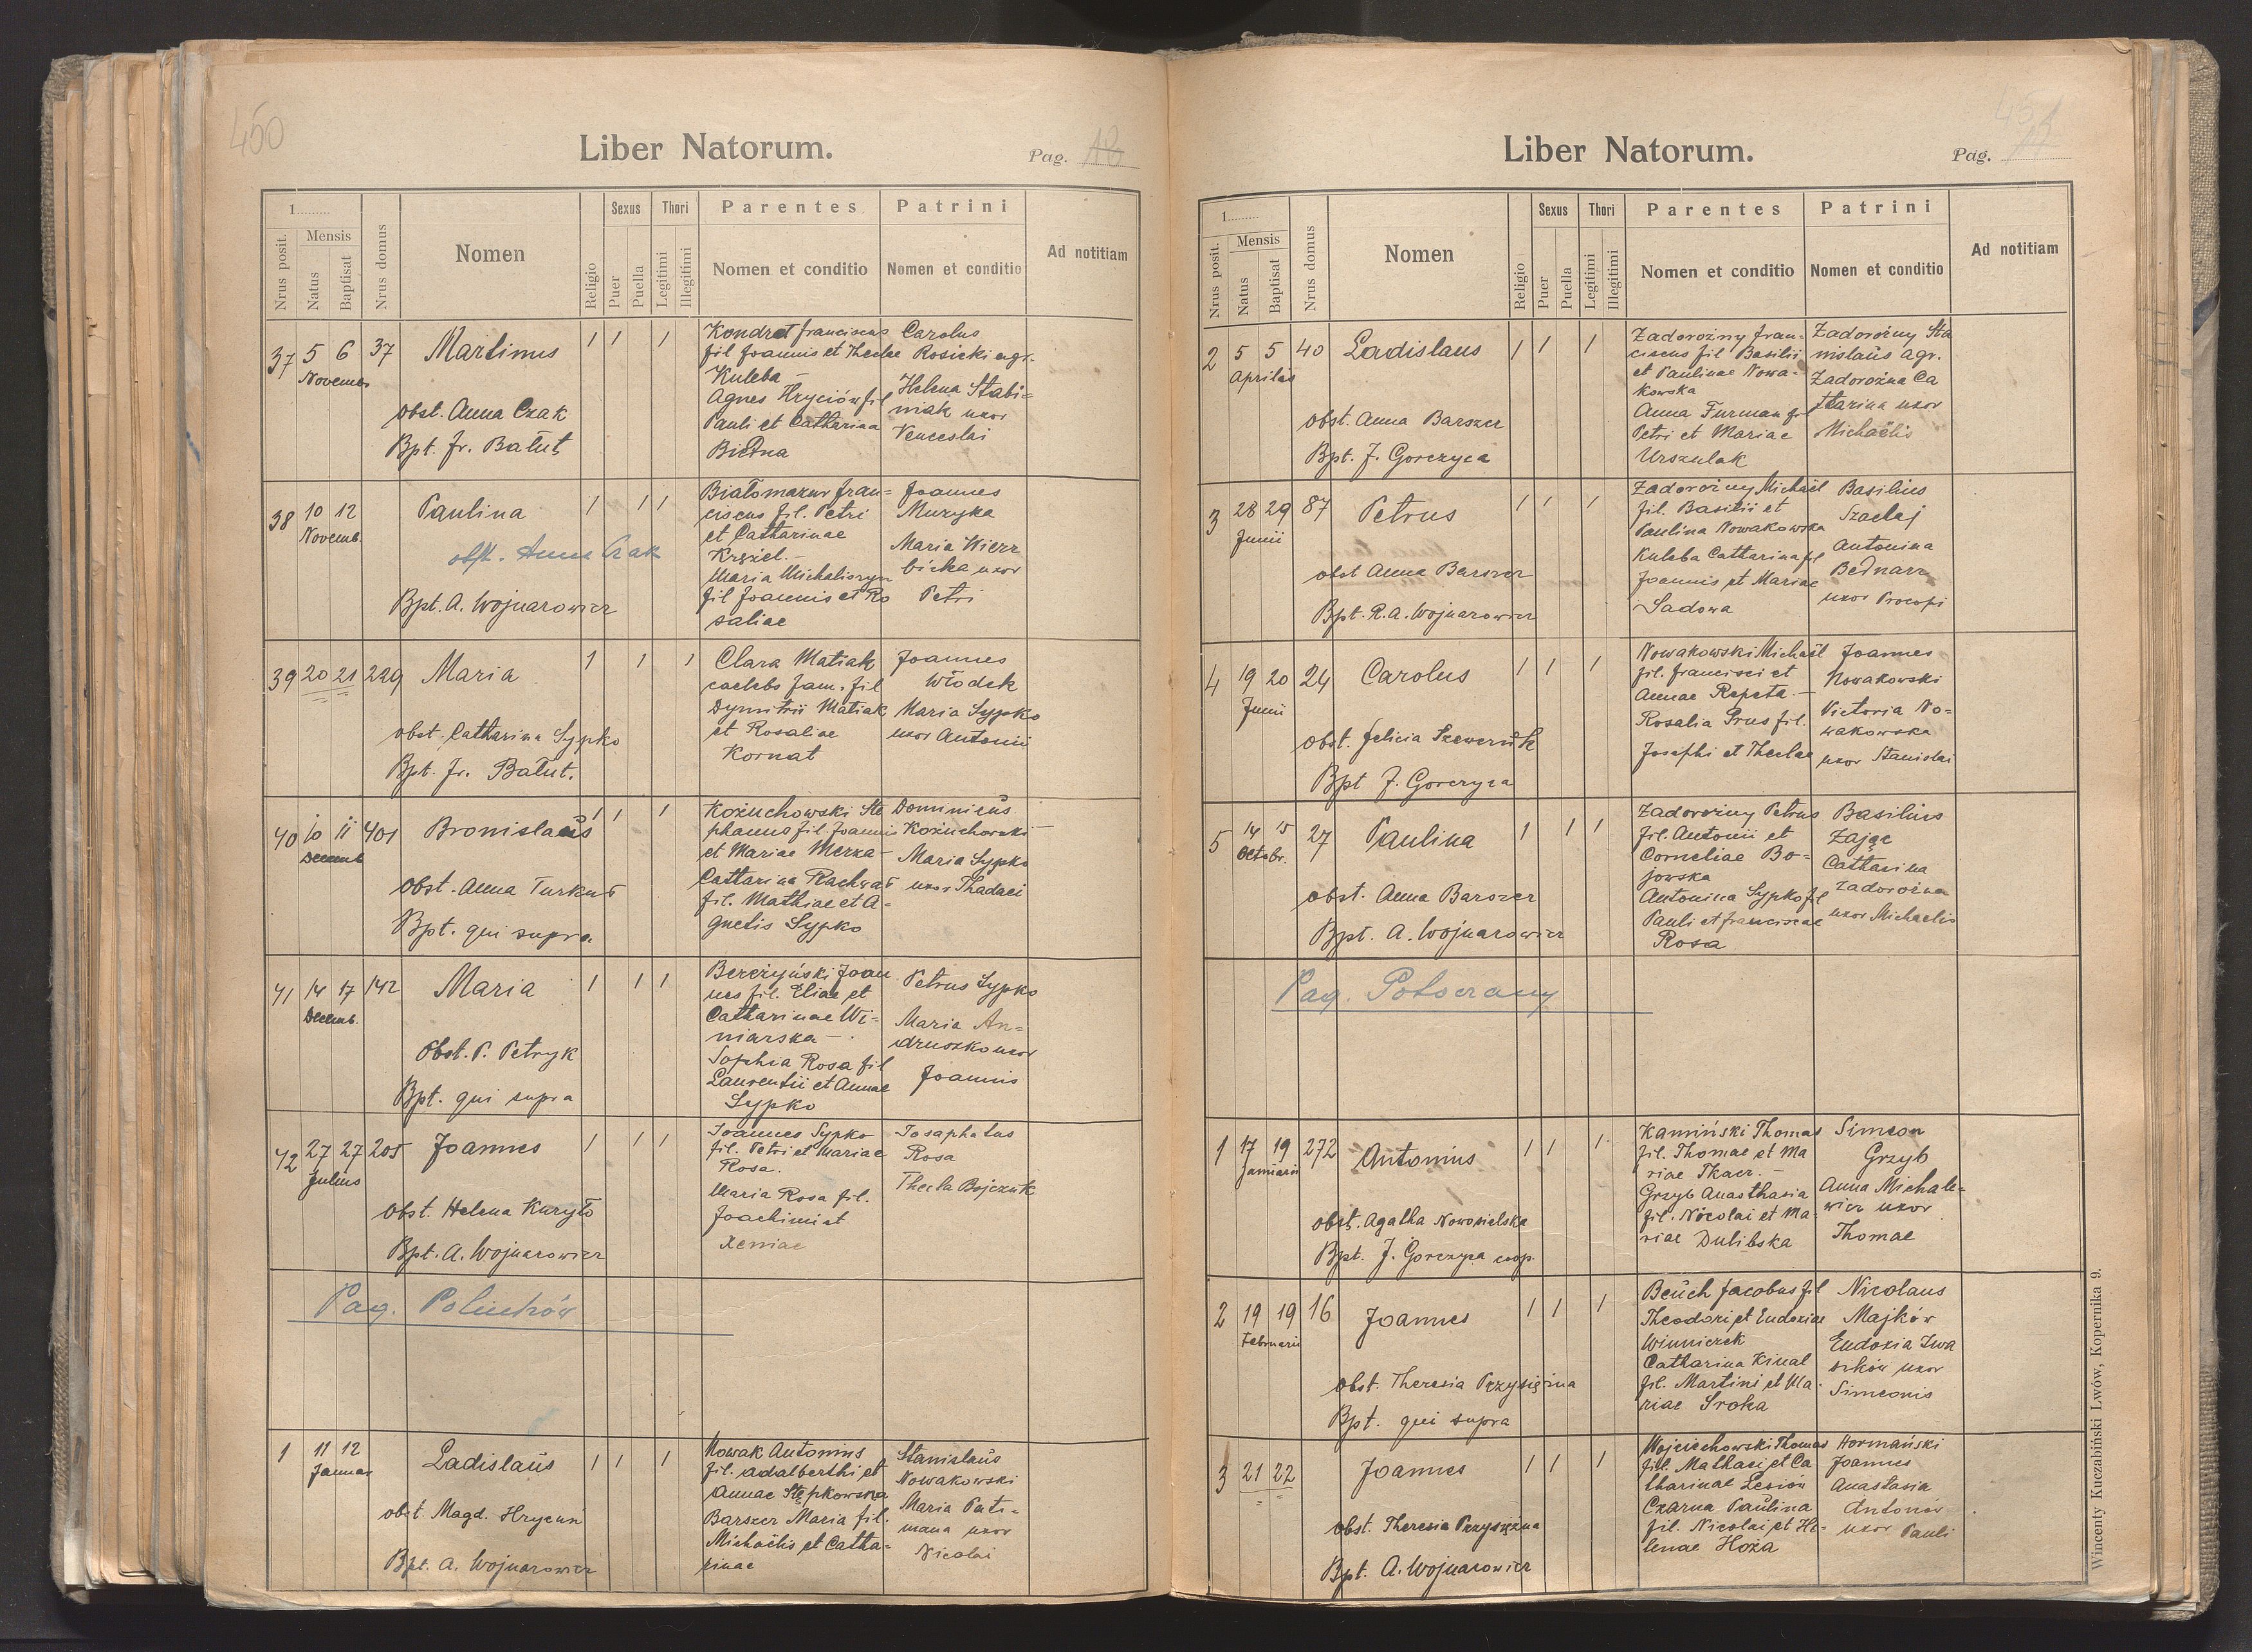 450
Liber Natorum.
Pag. 18
1.........
Nrus posit.
Mensis
Natus
Baptisat
Nrus domus
Nomen
Religio
Sexus
Puer
Puella
Thori
Legitimi
Illegitimi
Parentes
Nomen et conditio
Patrini
Nomen et conditio
Ad notitiam
37 5 6 37 Martinus 1 1 1
Novembr
obst. Anna Czak
Bpt. Fr. Batut
Kondrat Franciscus
fil Joannis et Theclae
Kuleba –
Agnes Hryciów fil
Pauli et Catharina
Biedna
Carolus
Rosicki agr.
Helena Stabi=
niak uxor
Venceslai
38 10 12 Paulina 1 1 1
Novemb.
obst. Anna Czak
Bpt. A. Wojnarowicz
Białomazur Fran=
ciscus fil. Petri
et Catharinae
Krężel. –
Maria Michaliszyn
fil Joannis et Ro
saliae
Joannes
Muzyka
Maria Wierz
bicka uxor
Petri
39 20 21 229 Maria 1 1 1
obst. Catharina Sypko
Bpt. Fr. Batut.
Clara Matiak
caelebs fam. fil
Dymitrii Matiak
et Rosaliae
Kornat
Joannes
Włodek
Maria Sypko
uxor Antonii
40 10 11 401 Bronislaus 1 1 1
Decemb
Obst. Anna Turkut
Bpt. qui supra
Kożuchowski Ste
phanus fil. Joannis
et Mariae Merza –
Catharina Rachwał
fil. Mathiae et A=
gnetis Sypko
Dominicus
Kożuchowski –
Maria Sypko
uxor Thadaei
41 14 17 142 Maria 1 1 1
Decemb.
Obst. P. Petryk
Bpt. qui supra
Bereżyński Joan
nes fil. Eliae et
Catharinae Wi=
niarska –
Sophia Rosa fil
Laurentii et Annae
Sypko
Petrus Sypko
Maria An=
druszko uxor
Joannis
42 27 27 205 Joannes 1 1 1
Julius
Obst. Helena Kuryło
Bpt. A. Wojnarowicz
Joannes Sypko
fil. Petri et Mariae
Rosa.
Maria Rosa fil.
Joachimi et
Xeniae
Josaphatus
Rosa
Thecla Bojczuk
Pag. Poluchów
1 11 12 Ladislaus 1 1 1
Januar
obst. Magd. Hrycun
Bpt. A. Wojnarowicz
Nowak Antonius
fil. Adalberthi et
Annae Stępkowska
Barszcz Maria fil.
Michaëlis et Catha=
rinae
Stanislaus
Nowakowski
Maria Puti=
mana uxor
Nicolai
Liber Natorum.
Pag.
1.........
Nrus posit.
Mensis
Natus
Baptisat
Nrus domus
Nomen
Religio
Sexus
Puer
Puella
Thori
Legitimi
Illegitimi
Parentes
Nomen et conditio
Patrini
Nomen et conditio
Ad notitiam
2 5 5 40 Ladislaus 1 1 1
Aprilis
obst. Anna Barszcz
Bpt. J. Gorczyca
Zadorożny Fran=
ciscus fil Basilii
et Paulinae Nowa=
kowska
Anna Furman fil
Petri et Mariae
Urszulak
Zadorożny Sta
nislaus agr.
Zadorożna Ca
tharina uxor
Michaëlis
3 28 29 87 Petrus 1 1 1
Junii
obst Anna Barszcz
Bpt. R. A. Wojnarowicz
Zadorożny Michaël
fil. Basilii et
Paulina Nowakowska
Kuleba Catharina fil
Joannis et Mariae
Sadowa
Basilius
Szaclaj
Antonina
Bednarz
uxor Procopi
4 19 20 24 Carolus 1 1 1
Junii
Obst. Felicia Szewczuk
Bpt J. Gorczyca
Nowakowski Michaël
fil. Francisci et
Annae Repeta. –
Rosalia Prus fil.
Josephi et Theclae
Joannes
Nowakowski
Victoria No=
wakowska
uxor Stanislai
5 14 15 27 Paulina 1 1 1
Octobr.
obst. Anna Barszcz
Bpt. A. Wojnarowicz
Zadorożny Petrus
fil. Antonii et
Corneliae Bo=
jowska
Antonina Sypko fil
Pauli et Franciscae
Rosa
Basilius
Zając
Catharina
Zadorożna
uxor Michaelis
Pag. Potoczany
1 17 19 272 Antonius 1 1 1
Januarii
obst. Agatha Nowosielska
Bpt. J. Gorczyca coop.
Kamiński Thomas
fil. Thomae et Ma
riae Tkacz. –
Grzyb Anasthasia
fil. Nicolai et Ma=
riae Dulibska
Simeon
Grzyb
Anna Michale=
wicz uxor
Thomae
2 19 19 16 Joannes 1 1 1
Februarii
obst. Theresia Przysiężna
Bpt. qui supra
Beuch Jacobus fil
Theodori et Eudoxiae
Winniczek
Catharina Kinal
fil. Martini et Ma=
riae Sroka
Nicolaus
Majków
Eudoxia Iwa
sików uxor
Simeonis
3 21 22 Joannes 1 1 1
obst. Theresia Przysiężna
Bpt. A. Wojnarowicz
Wojciechowski Thomas
fil. Mathaei et Ca
tharinae Lesiów
Czarna Paulina
fil. Nicolai et He=
lenae Hoża
Hormański
Joannes
Anastasia
Antonów
uxor Pauli
Wincenty Kuczabiński Lwów, Kopernika 9.